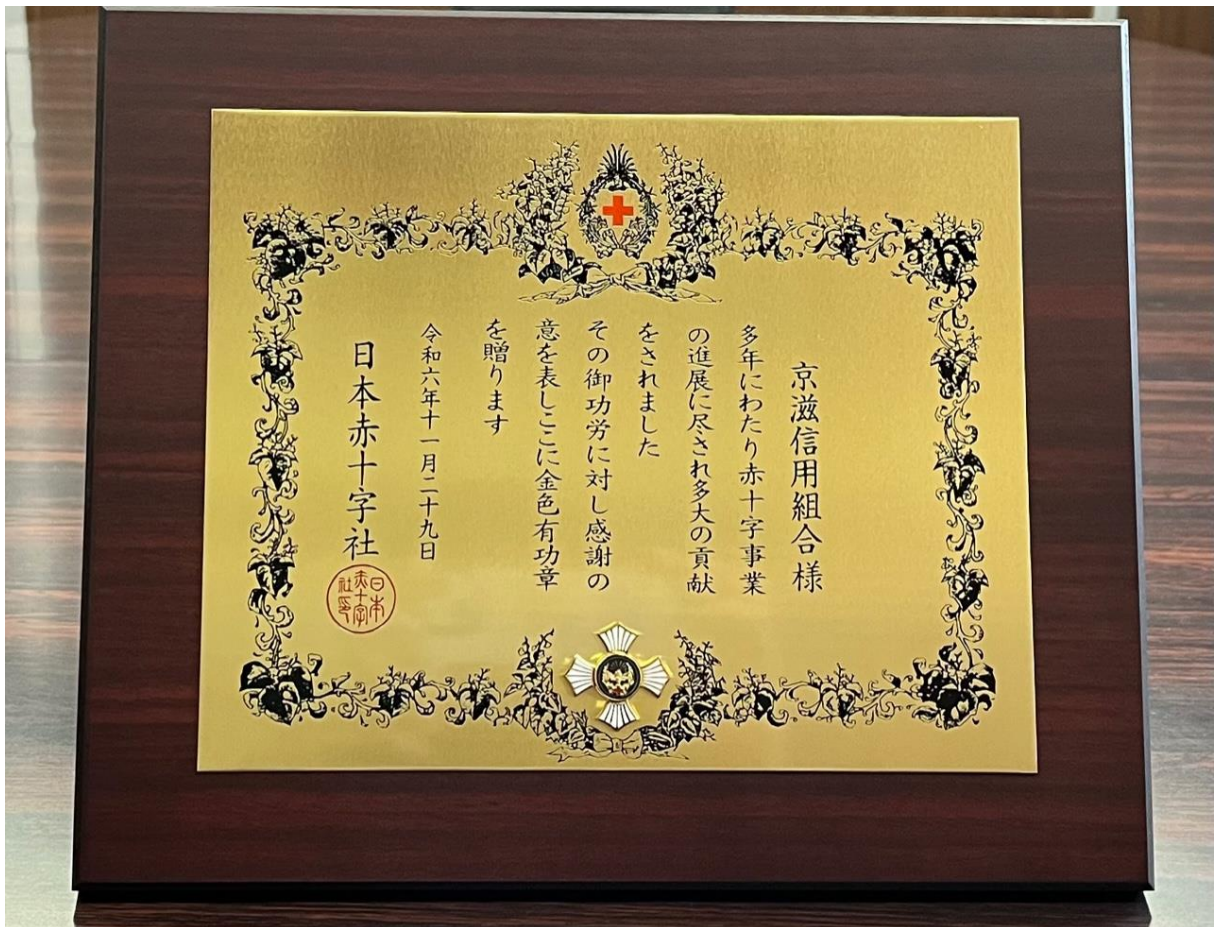 京滋信用組合様
多年にわたり赤十字事業
の進展に尽され多大の貢献
をされました
その御功労に対し感謝の
意を表しここに金色有功章
を贈ります
令和六年十一月二十九日
日本赤十字社
日本
赤十字
社印